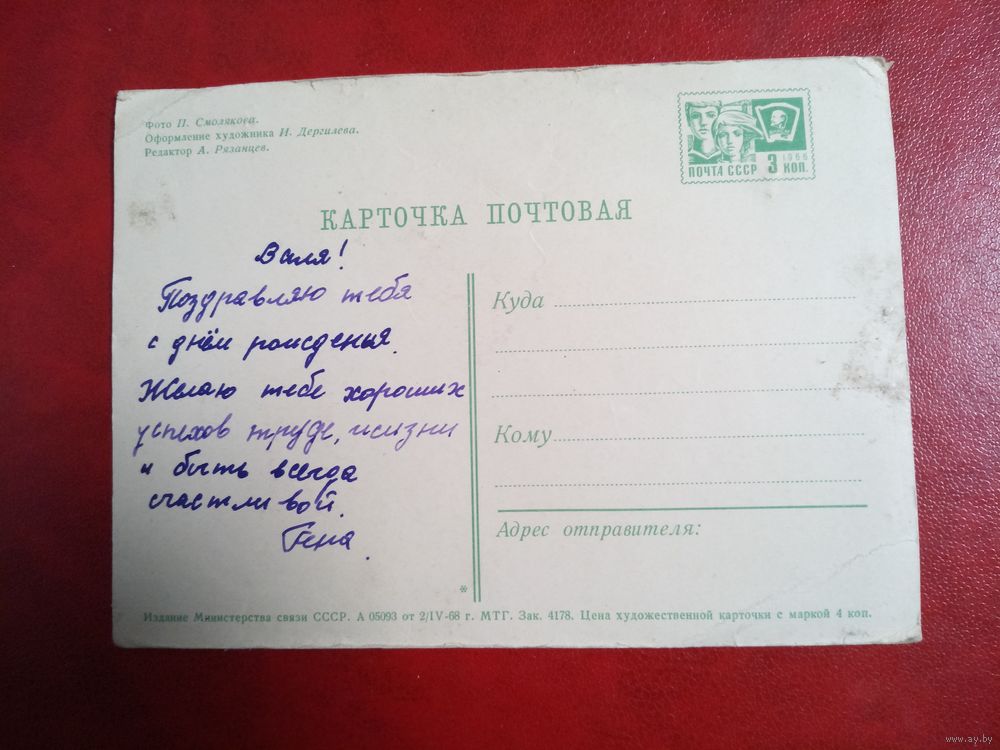 Фото П. Смолякова.
Оформление художника И. Дергилева.
Редактор А. Рязанцев.
1966
ПОЧТА СССР 3 КОП.
КАРТОЧКА ПОЧТОВАЯ
Валя!
Поздравляю тебя
с днём рожденья.
Желаю тебе хороших
успехов труде, жизни
и быть всегда
счастливой.
Гена.
Куда
Кому
Адрес отправителя:
*
Издание Министерства связи СССР. А 05093 от 2/IV-68 г. МТГ. Зак. 4178. Цена художественной карточки с маркой 4 коп.
www.ay.by